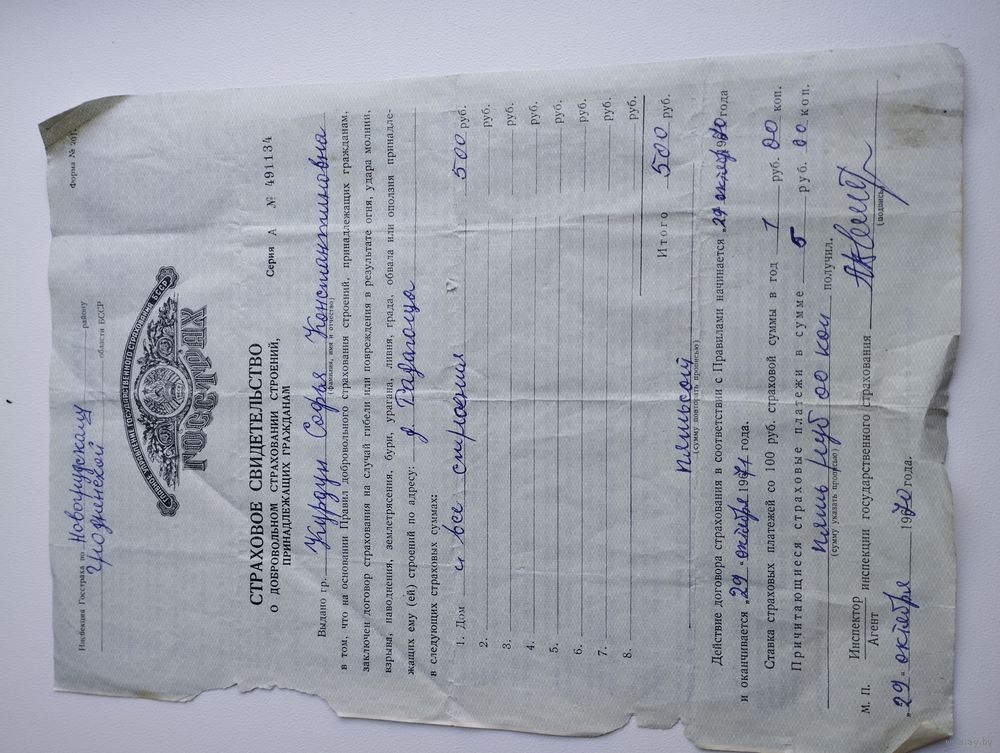 Форма № 201.
Инспекция Госстраха по Новогрудскому району
Гродненской области БССР
ГЛАВНОЕ УПРАВЛЕНИЕ ГОСУДАРСТВЕННОГО СТРАХОВАНИЯ БССР
ГОССТРАХ
СТРАХОВОЕ СВИДЕТЕЛЬСТВО
О ДОБРОВОЛЬНОМ СТРАХОВАНИИ СТРОЕНИЙ,
ПРИНАДЛЕЖАЩИХ ГРАЖДАНАМ
Серия А № 491134
Выдано гр. Софья Константиновна
(фамилия, имя и отчество)
в том, что на основании Правил добровольного страхования строений, принадлежащих гражданам,
заключен договор страхования на случай гибели или повреждения в результате огня, удара молнии,
взрыва, наводнения, землетрясения, бури, урагана, ливня, града, обвала или оползня принадле-
жащих ему (ей) строений по адресу: д
в следующих страховых суммах:
1. Дом и все строения 500 руб.
2. руб.
3. руб.
4. руб.
5. руб.
6. руб.
7. руб.
8. руб.
Итого 500 руб.
пятьсот
(сумму повторить прописью)
Действие договора страхования в соответствии с Правилами начинается „29 октября 1970 года
и оканчивается „29“ октября 1971 года.
Ставка страховых платежей со 100 руб. страховой суммы в год 1 руб. 00 коп.
Причитающиеся страховые платежи в сумме 5 руб. 00 коп.
пять руб 00 коп получил.
(сумму указать прописью)
М. П. Инспектор
Агент инспекции государственного страхования
(подпись)
„29“ октября 1970 года.
ay.by